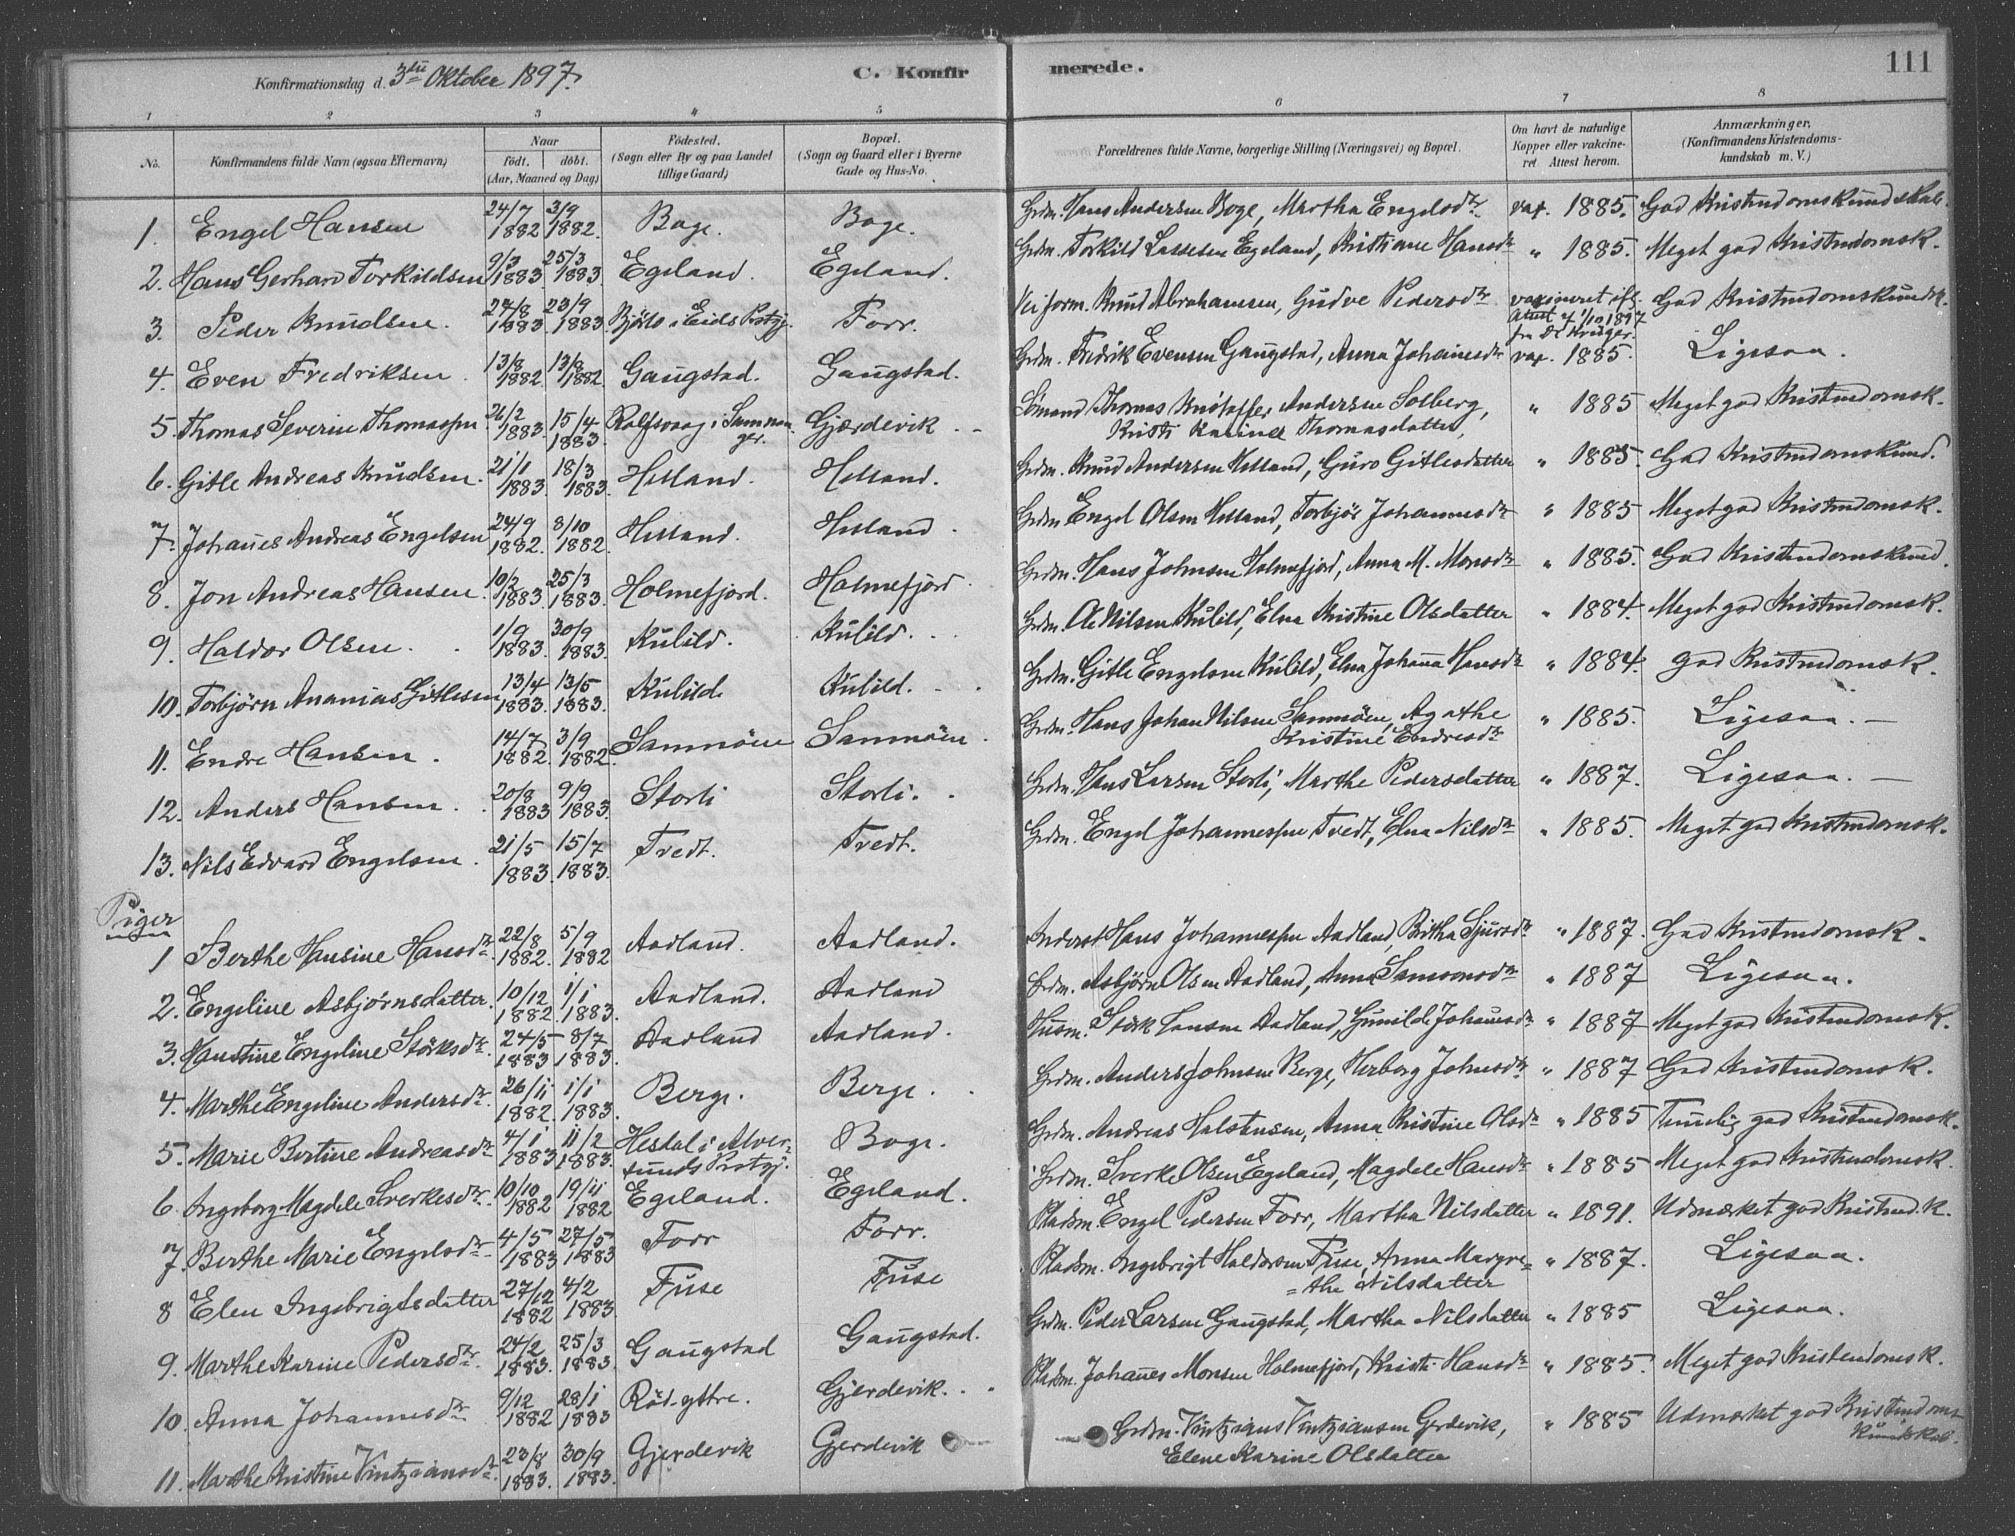 111
Konfirmationsdag d. 3die Oktober 1897.
C. Konfirmerede.
1 2 3 4 5 6 7 8
No.
Konfirmandens fulde Navn (ogsaa Efternavn)
Naar
født. døbt.
(Aar, Maaned og Dag)
Fødested.
(Sogn eller By og paa Landet
tillige Gaard)
Bopæl.
(Sogn og Gaard eller i Byerne
Gade og Hus-No.
Forældrenes fulde Navne, borgerlige Stilling (Næringsvei) og Bopæl.
Om havt de naturlige
Kopper eller vakcine-
ret Attest herom.
Anmærkninger,
(Konfirmandens Kristendoms-
kundskab m. V.)
1. Engel Hansen 24/7 1882 3/9 1882. Boge. Boge. Grdm. Hans Andersen Boge, Martha Engelsdtr. vax. 1885. God Kristendomskundskab.
2. Hans Gerhard Torkildsen 9/3 1883 25/3 1883. Egeland. Egeland. Grdm. Torkild Lassesen Egeland, Kristiane Hansdtr " 1885. Meget god Kristendomsk.
3. Peder Knudsen. 24/8 1883 23/9 1883. i Eids Prstgj. Forr. Veiform. Knud Abrahamsen, Gudve Pedersdtr vaxineret ifl. God Kristendomskundsk.
Attest af 1/10 1897
fra Dr Krüger.
4. Even Fredriksen 13/8 1882 13/8 1882. Gaugstad. Gaugstad. Grdm. Fredrik Evensen Gaugstad, Anna Johannesdtr vax. 1885. Ligesaa.
5. Thomas Severin Thomassen 26/2 1883. 15/4 1883. Rolfsvaag i Samnan- Gjerdevik Sømand Thomas Andersen Solberg, " 1885 Meget god Kristendomsk.
ger. Kristi Karine Thomasdatter,
6. Gitle Andreas Knudsen. 21/1 1883. 18/3 1883. Helland. Helland. Grdm. Knud Andersen Helland, Guro Gitlesdatter " 1885. God Kristendomskund.
7. Johanes Andreas Engelsen 24/9 1882. 8/10 1882. Helland. Helland. Grdm Engel Olsen Helland, Torbjør Johannesdtr " 1885 Meget god Kristendomsk.
8. Jon Andreas Hansen. 10/2 1883. 25/3 1883. Holmefjord. Holmefjord. Grdm. Hans Johnsen Holmefjord, Anna M. Monsdtr " 1885. God Kristendomskund.
9. Haldor Olsen. 1/9 1883. 30/9 1883. Kulild. Kulild. Grdm. Ole Nilsen Kulild, Elna Kristine Olsdatter " 1884. Meget god Kristendomsk.
10. Torbjørn Ananias Gitlesen 13/4 1883. 13/5 1883. Kulild. Kulild. Grdm. Gitle Engelsen Kulild, Elna Johanna Hansdtr " 1884. god Kristendomsk.
11. Endre Hansen. 14/7 1882. 3/9 1882. Samnöen Samnöen. Grdm. Hans Johan Nilsen Samnöen, Agathe " 1885. Ligesaa. —
Kristine Endresdtr
12. Anders Hansen. 20/8 1883. 9/9 1883. Storli Storli. Grdm. Hans Larsen Storli, Marthe Pedersdatter " 1887. Ligesaa. —
13. Nils Edvard Engelsen. 21/5 1883. 15/7 1883. Tvedt. Tvedt. Grdm. Engel Johannessen Tvedt, Elna Nilsdtr " 1885. Meget god Kristendomsk.
Piger
1 Berthe Hansine Hansdtr. 22/8 1882. 5/9 1882 Aadland. Aadland. Inderst Hans Johannessen Aadland, Britha Sjursdtr " 1887. God Kristendomsk.
2. Engeline Asbjørnsdatter. 10/12 1882. 1/1 1883. Aadland. Aadland Grdm. Asbjørn Olsen Aadland, Anna Samsonsdtr " 1887 Ligesaa.
3. Haustine Engeline Störksdtr. 24/5 1883 8/7 1883. Aadland Aadland. Husm. Störk Aadland, Gunilde Johanesdtr " 1887 Meget god Kristendomsk.
4. Marthe Engeline Andersdtr. 26/11 1882. 1/1 1883. Berge. Berge. Grdm. Anders Johnsen Berge, Herborg Johnsdtr " 1887 God Kristendomsk.
5. Marie Bertine Andreasdtr 4/1 1883 11/2 1883. Hesdal i Alver- Boge. Grdm. Andreas Halstensen, Anna Kristine Olsdtr " 1885 Temelig god Kristendomsk.
sunds Prstgj.
6. Ingeborg Magdele Sverkesdtr. 10/10 1882 19/11 1882 Egeland. Egeland. Grdm. Sverke Olsen Egeland, Magdele Hansdtr " 1885 Meget god Kristendomsk.
7. Berthe Marie Engelsdtr 4/5 1883 27/5 1883 Forr Forr. Pladsm. Engel Pedersen Forr, Martha Nilsdatter " 1891. Udmærket god Kristend.k.
8 Elen Ingebrigtsdatter 27/12 1882 4/2 1883. Fuse Fuse Pladsm. Ingebrigt Haldorsen Fuse, Anna Margre= " 1887. Ligesaa.
=the Nilsdatter
9. Marthe Karine Pedersdtr. 24/2 1883. 25/3 1883. Gaugstad Gaugstad. Grdm. Peder Larsen Gaugstad, Martha Nilsdatter " 1885 Ligesaa.
10. Anna Johannesdtr 9/12 1882 28/1 1883 Röd-ystre. Gjerdevik. Pladsm. Johanes Monsen Holmefjord, Kristi Hansdtr " 1885. Meget god Kristendomsk.
11. Marthe Kristine Vintziansdtr. 23/8 1883. 30/9 1883. Gjerdevik Gjerdevik Grdm. Vintzians Vintziansen Gerdevik, " 1885 Udmerket god Kristendoms
Elene Karine Olsdatter Kundskab.